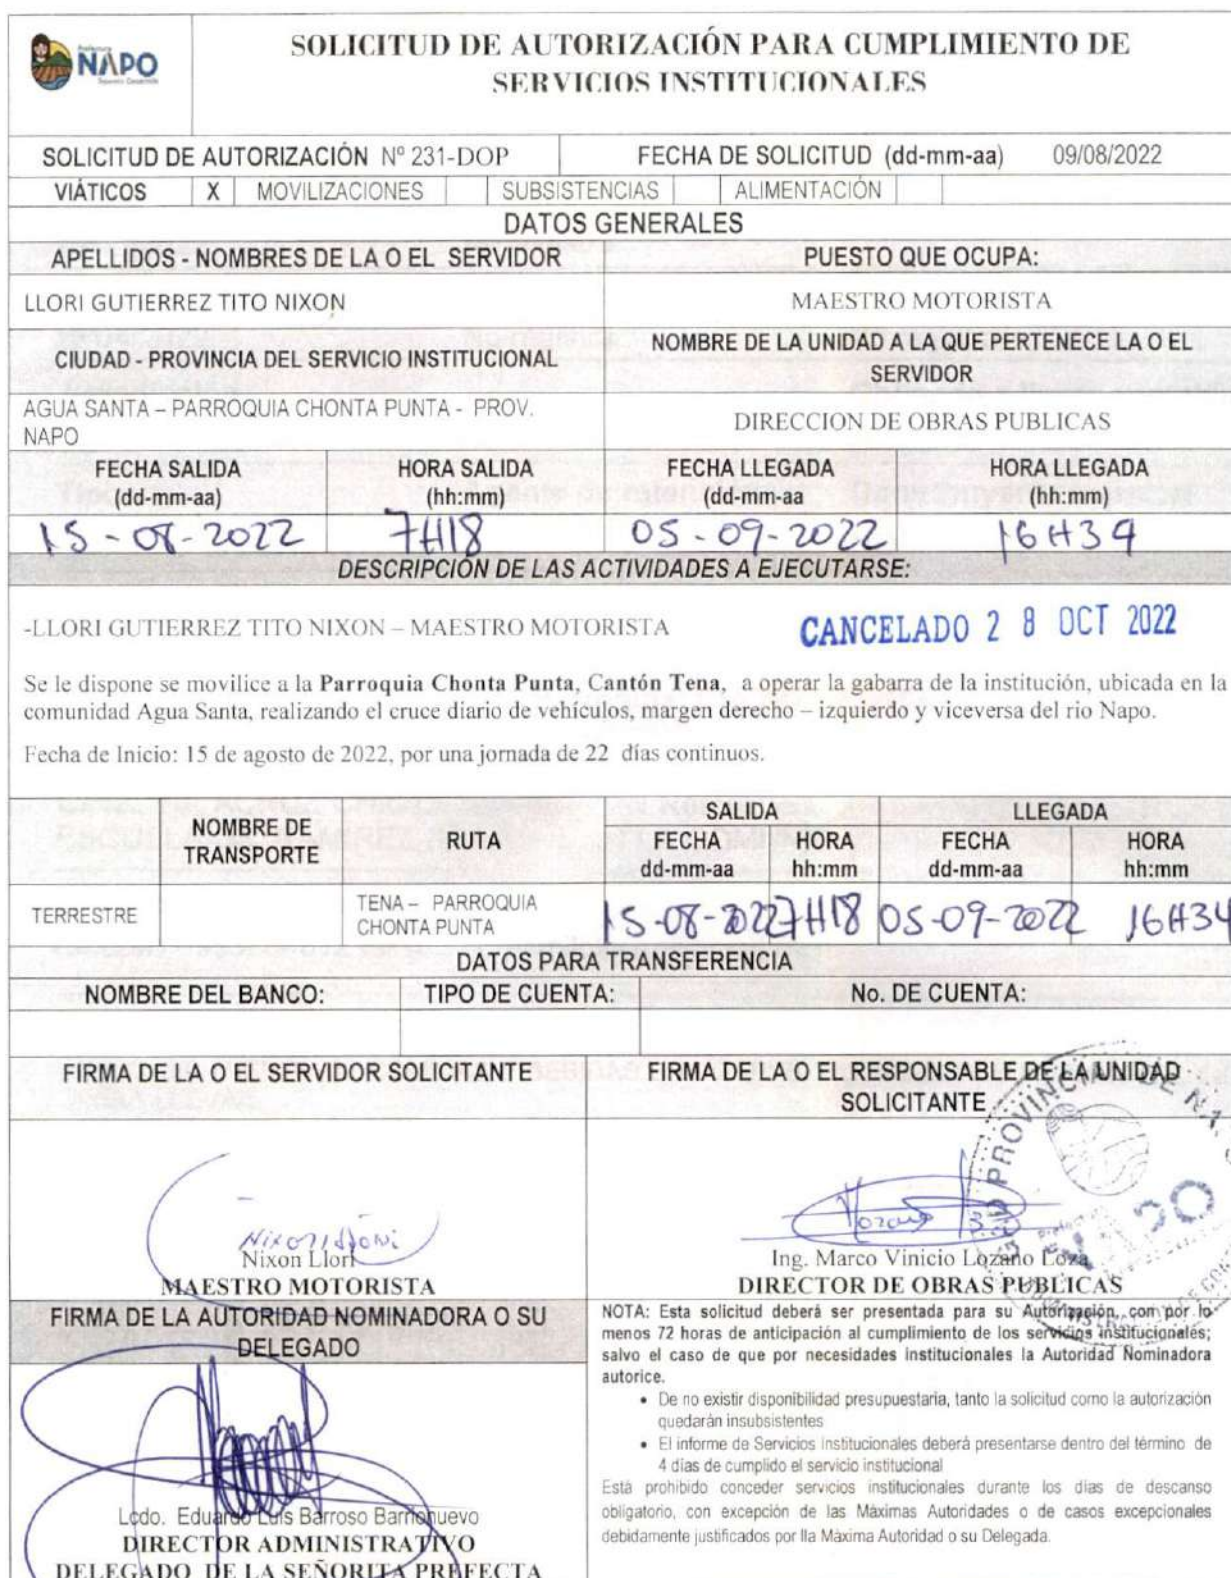 Prefectura
NAPO
SOLICITUD DE AUTORIZACIÓN PARA CUMPLIMIENTO DE
SERVICIOS INSTITUCIONALES
SOLICITUD DE AUTORIZACIÓN Nº 231-DOP FECHA DE SOLICITUD (dd-mm-aa) 09/08/2022
VIÁTICOS X MOVILIZACIONES SUBSISTENCIAS ALIMENTACIÓN
DATOS GENERALES
APELLIDOS - NOMBRES DE LA O EL SERVIDOR PUESTO QUE OCUPA:
LLORI GUTIERREZ TITO NIXON MAESTRO MOTORISTA
CIUDAD - PROVINCIA DEL SERVICIO INSTITUCIONAL NOMBRE DE LA UNIDAD A LA QUE PERTENECE LA O EL
SERVIDOR
AGUA SANTA – PARROQUIA CHONTA PUNTA - PROV.
NAPO DIRECCION DE OBRAS PUBLICAS
FECHA SALIDA HORA SALIDA FECHA LLEGADA HORA LLEGADA
(dd-mm-aa) (hh:mm) (dd-mm-aa (hh:mm)
15-08-2022 7H18 05-09-2022 16H34
DESCRIPCIÓN DE LAS ACTIVIDADES A EJECUTARSE:
-LLORI GUTIERREZ TITO NIXON – MAESTRO MOTORISTA CANCELADO 28 OCT 2022
Se le dispone se movilice a la Parroquia Chonta Punta, Cantón Tena, a operar la gabarra de la institución, ubicada en la
comunidad Agua Santa, realizando el cruce diario de vehículos, margen derecho – izquierdo y viceversa del rio Napo.
Fecha de Inicio: 15 de agosto de 2022, por una jornada de 22 días continuos.
NOMBRE DE
TRANSPORTE RUTA SALIDA LLEGADA
FECHA HORA FECHA HORA
dd-mm-aa hh:mm dd-mm-aa hh:mm
TERRESTRE TENA – PARROQUIA
CHONTA PUNTA 15-08-2022 7H18 05-09-2022 16H34
DATOS PARA TRANSFERENCIA
NOMBRE DEL BANCO: TIPO DE CUENTA: No. DE CUENTA:
FIRMA DE LA O EL SERVIDOR SOLICITANTE FIRMA DE LA O EL RESPONSABLE DE LA UNIDAD
SOLICITANTE
Nixon Llori
MAESTRO MOTORISTA
Ing. Marco Vinicio Lozano Loza
DIRECTOR DE OBRAS PUBLICAS
FIRMA DE LA AUTORIDAD NOMINADORA O SU
DELEGADO
Lcdo. Eduardo Luis Barroso Barrionuevo
DIRECTOR ADMINISTRATIVO
DELEGADO DE LA SEÑORITA PREFECTA
NOTA: Esta solicitud deberá ser presentada para su Autorización, con por lo
menos 72 horas de anticipación al cumplimiento de los servicios institucionales;
salvo el caso de que por necesidades institucionales la Autoridad Nominadora
autorice.
• De no existir disponibilidad presupuestaria, tanto la solicitud como la autorización
quedarán insubsistentes
• El informe de Servicios Institucionales deberá presentarse dentro del término de
4 días de cumplido el servicio institucional
Está prohibido conceder servicios institucionales durante los días de descanso
obligatorio, con excepción de las Máximas Autoridades o de casos excepcionales
debidamente justificados por lla Máxima Autoridad o su Delegada.